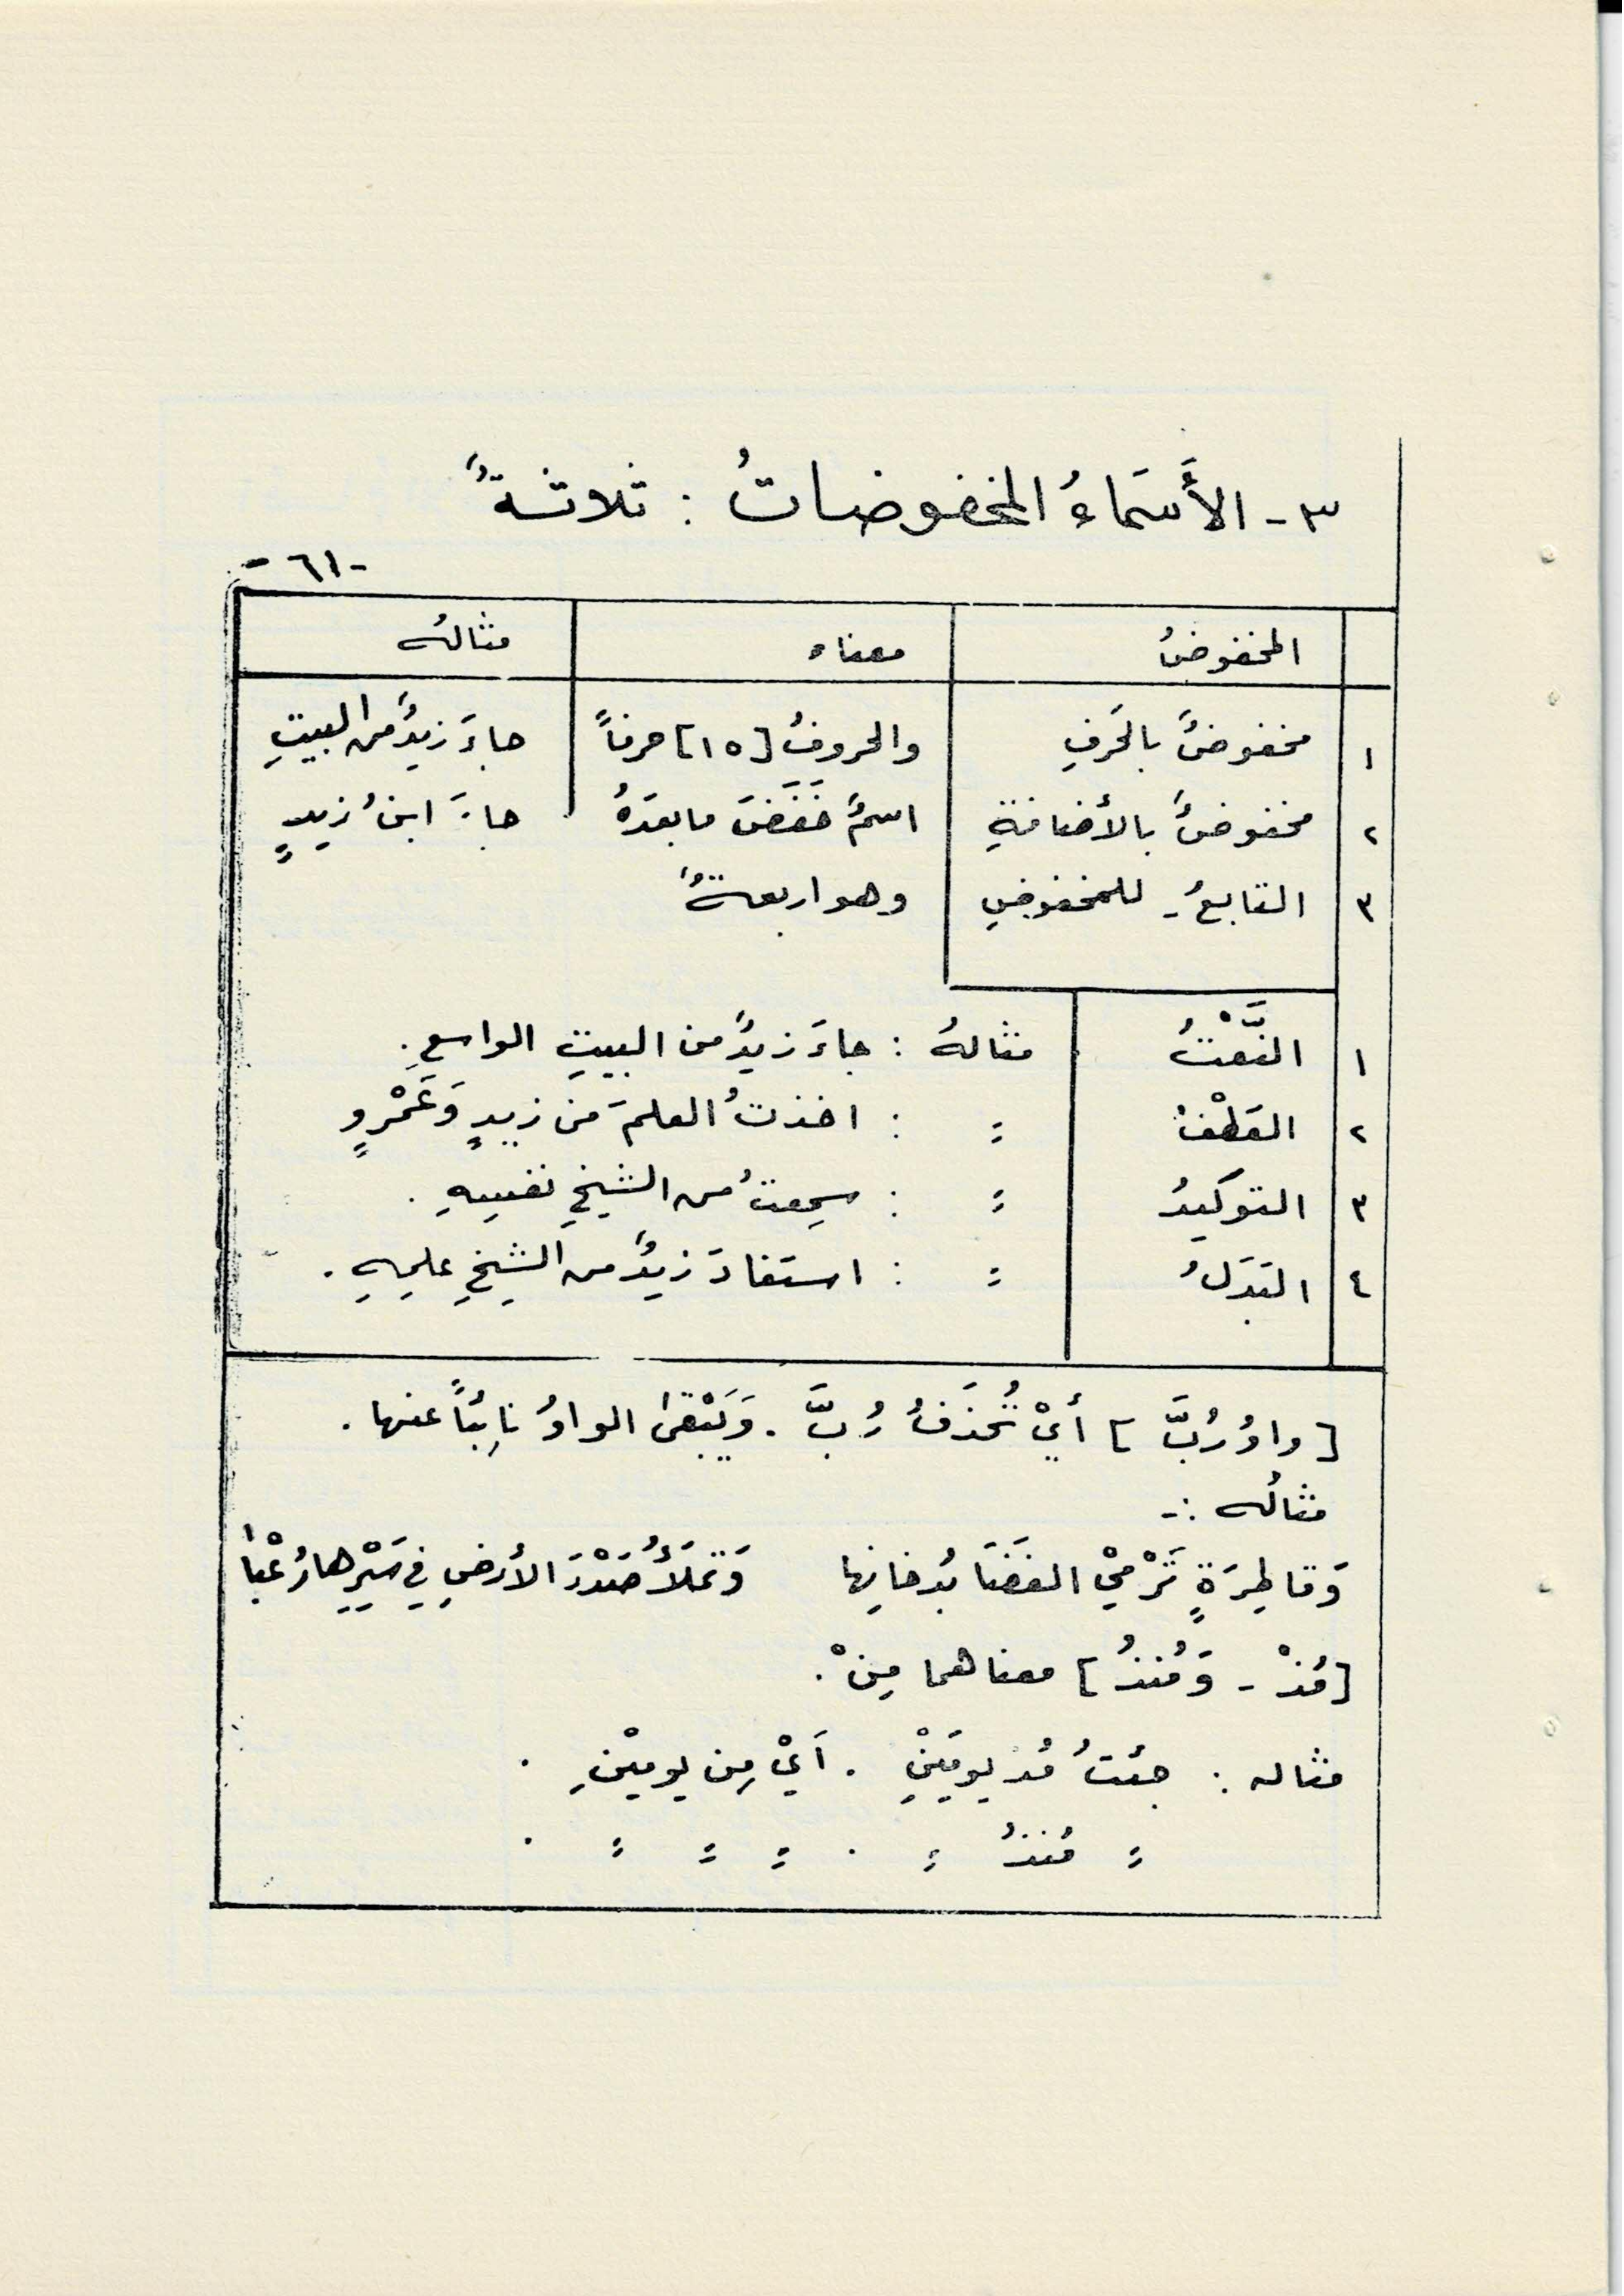 ٣- الأَسَماءُ المخفوضاتُ : ثلاثةٌ
-٦١-
المخفوضُ معناه مثالهُ
١ مخفوضٌ بالحَرفِ والحروفُ [١٥] حرفاً جاءَ زيدٌ من البيتِ
٢ مخفوضٌ بالأضافةِ اسمٌ خَفَضَ مابعدَهُ جاءَ ابنُ زيدٍ
٣ التابعُ - للمخفوضِ وهو اربعةٌ
١ النَّعْتُ مثالهُ : جاءَ زيدٌ من البيتِ الواسعِ .
٢ العَطْفُ = : اخذتُ العلمَ من زيدٍ وَعَمْروٍ
٣ التوكيدُ = : سمِعتُ من الشيخِ نفسِهِ .
٤ البَدَلُ = : استفادَ زيدٌ من الشيخِ علمِهِ .
[واوُ رُبَّ] أيْ تُحذَفُ رُبَّ . وَيَبْقىٰ الواوُ نائِباً عنها .
مثالُه :-
وَقاطِرَةٍ تَرْمِيْ الفَضَا بُدخانِها وَتَملَأُ صَدْرَ الأرضِ فِي سَيْرِها رُعْبا
[مُذْ - وَمُنذُ] معناهما مِنْ .
مثاله : جئتُ مُذ يومَيْنِ . اَيْ مِن يوميْنِ .
= مُنذُ = . = = = .